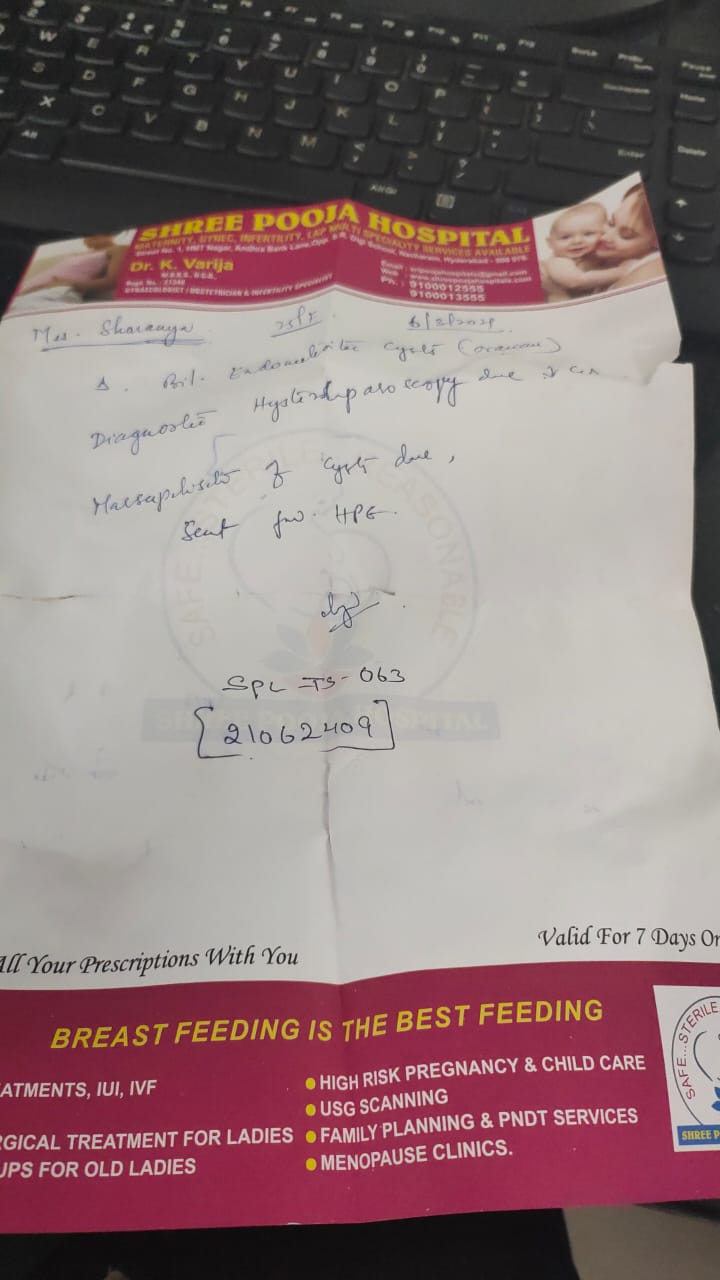 SHREE POOJA HOSPITAL
MATERNITY, GYNEC, INFERTILITY, LAP MULTI SPECIALITY SERVICES AVAILABLE
Dr. K. Varija
M.B.B.S., D.G.O.,
GYNAECOLOGIST / OBSTETRICIAN & INFERTILITY SPECIALIST
9100012555
9100013555
Mrs. Sharanya 25/F
Bil. Endometriotic Cysts (ovarian)
Diagnostic Hysterolaparoscopy done
Marsupilisatn of Cysts done,
Sent for HPE.
SPL-TS-063
[21062409]
SAFE...STERILE REASONABLE
SHREE POOJA HOSPITAL
All Your Prescriptions With You
Valid For 7 Days
BREAST FEEDING IS THE BEST FEEDING
ATMENTS, IUI, IVF
RGICAL TREATMENT FOR LADIES
UPS FOR OLD LADIES
HIGH RISK PREGNANCY & CHILD CARE
USG SCANNING
FAMILY PLANNING & PNDT SERVICES
MENOPAUSE CLINICS.
SAFE...STERILE
SHREE P